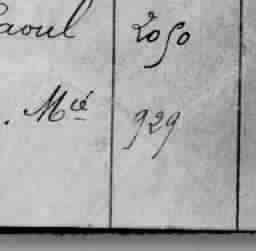 Raoul 2050
. Mcié 929